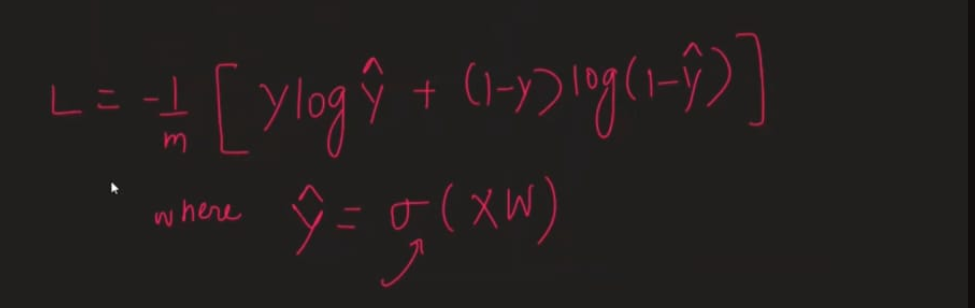 L = -1/m [ y log ŷ + (1-y) log(1-ŷ) ]
where ŷ = σ(XW)